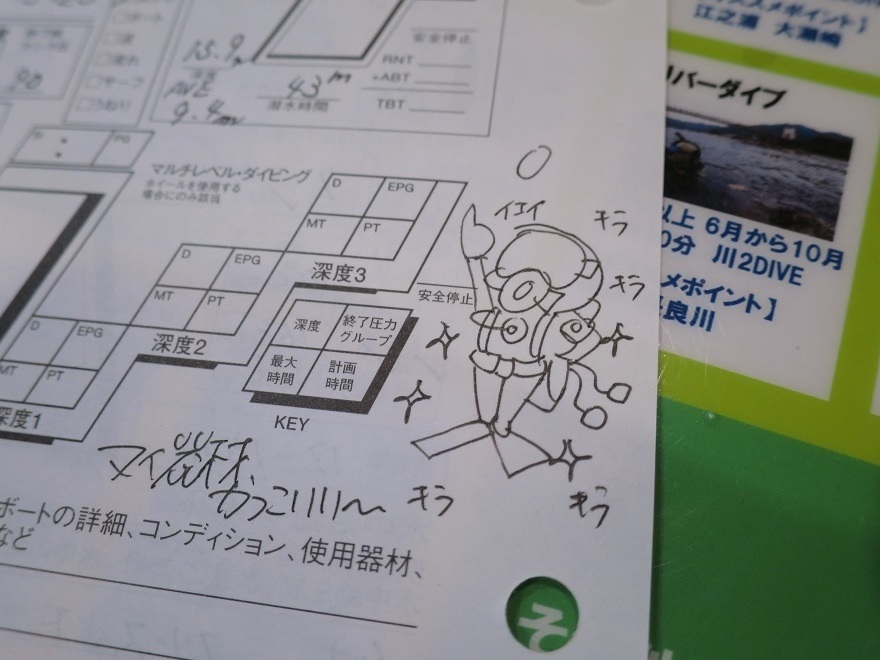 15.9
安全停止
20
ボート
流れ
サーフ
うねり
RNT
AVE
43 m
+ABT
潜水時間
9.4m
TBT
PG
マルチレベル・ダイビング
ホイールを使用する
場合にのみ該当
D
EPG
MT
PT
深度3
D
EPG
MT
PT
深度2
D
EPG
MT
PT
深度1
安全停止
深度
終了圧力
グループ
最大
時間
計画
時間
KEY
イエイ
キラ
キラ
キラ
キラ
マイ器材、
かっこいい〜
ボートの詳細、コンディション、使用器材、
など
そ
ススメポイント】
江之浦 大瀬崎
リバーダイブ
以上 6月から10月
0分 川2DIVE
メポイント】
良川